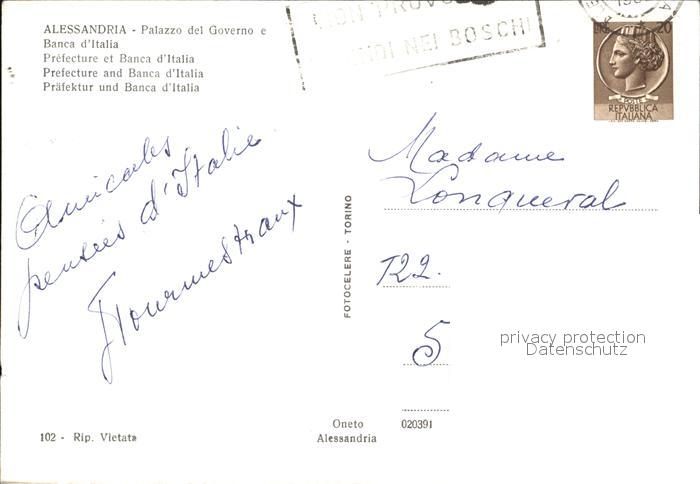 ALESSANDRIA - Palazzo del Governo e
Banca d'Italia
Préfecture et Banca d'Italia
Prefecture and Banca d'Italia
Präfektur und Banca d'Italia
NEI BOSCHI
20
POSTE
REPVBBLICA
ITALIANA
Amicales
pensées d'Italie
Madame
Longueval
T22.
5
FOTOCELERE - TORINO
privacy protection
Datenschutz
102 - Rip. Vietata
Oneto
Alessandria
020391